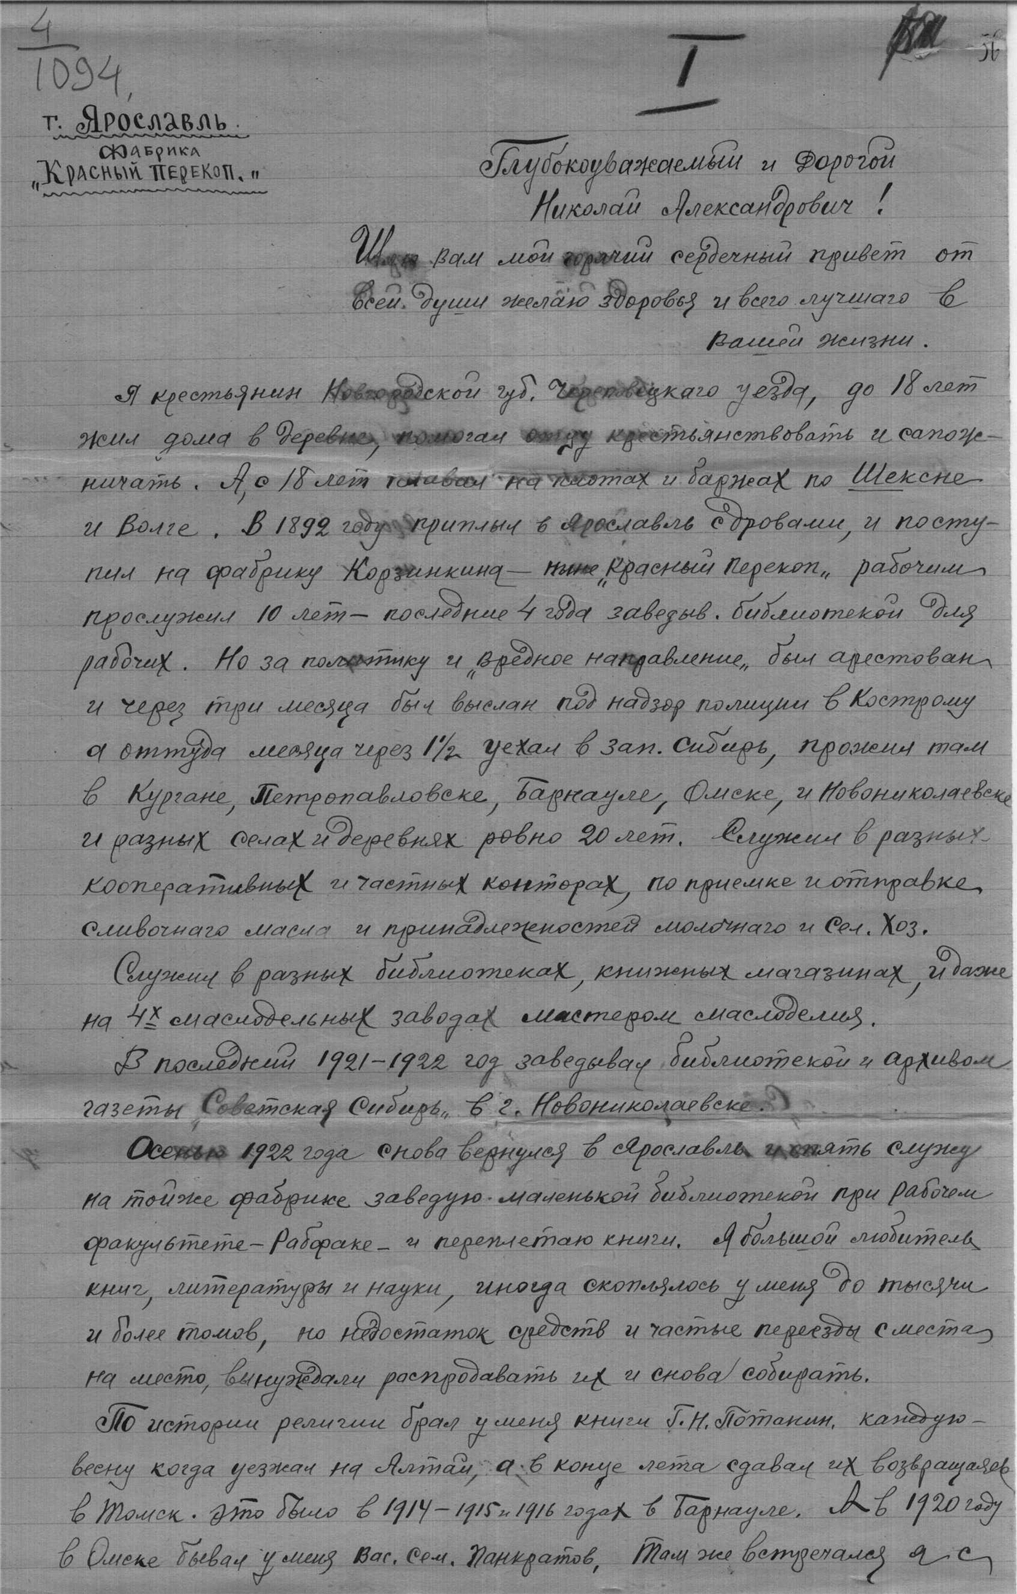 4
1094,
I
56
г. Ярославль.
Фабрика
"Красный Перекоп."
Глубокоуважаемый и Дорогой
Николай Александрович!
Шлю вам мой горячий сердечный привет от
всей души желаю здоровья и всего лучшаго в
вашей жизни.
Я крестьянин Новгородской губ. Череповецкаго уезда, до 18 лет
жил дома в деревне, помогал отцу крестьянствовать и сапож-
ничать. А, с 18 лет плавал на плотах и баржах по Шексне
и Волге. В 1892 году приплыл в Ярославль с дровами, и посту-
пил на фабрику Корзинкина — ныне „Красный Перекоп„ рабочим
прослужил 10 лет — последние 4 года заведыв. библиотекой для
рабочих. Но за политику и „вредное направление„ был арестован
и через три месяца был выслан под надзор полиции в Кострому
а оттуда месяца через 1½ уехал в зап. Сибирь, прожил там
в Кургане, Петропавловске, Барнауле, Омске, и Новониколаевске
и разных селах и деревнях ровно 20 лет. Служил в разных
кооперативных и частных конторах, по приемке и отправке
сливочнаго масла и принадлежностей молочнаго и Сел. Хоз.
Служил в разных библиотеках, книжных магазинах, и даже
на 4х маслодельных заводах мастером маслоделия.
В последний 1921-1922 год заведывал библиотекой и архивом
газеты „Советская Сибирь„ в г. Новониколаевске.
Осенью 1922 года снова вернулся в Ярославль и опять служу
на тойже фабрике заведую маленькой библиотекой при рабочем
факультете — Рабфаке — и переплетаю книги. Я большой любитель
книг, литературы и науки, иногда скоплялось у меня до тысячи
и более томов, но недостаток средств и частые переезды с места
на место, вынуждали распродавать их и снова собирать.
По истории религии брал у меня книги Г. Н. Потанин. каждую
весну когда уезжал на Алтай, а в конце лета сдавал их возвращаясь
в Томск. Это было в 1914-1915 и 1916 годах в Барнауле. А в 1920 году
в Омске бывал у меня Вас. Сем. Панкратов, Там же встречался я с